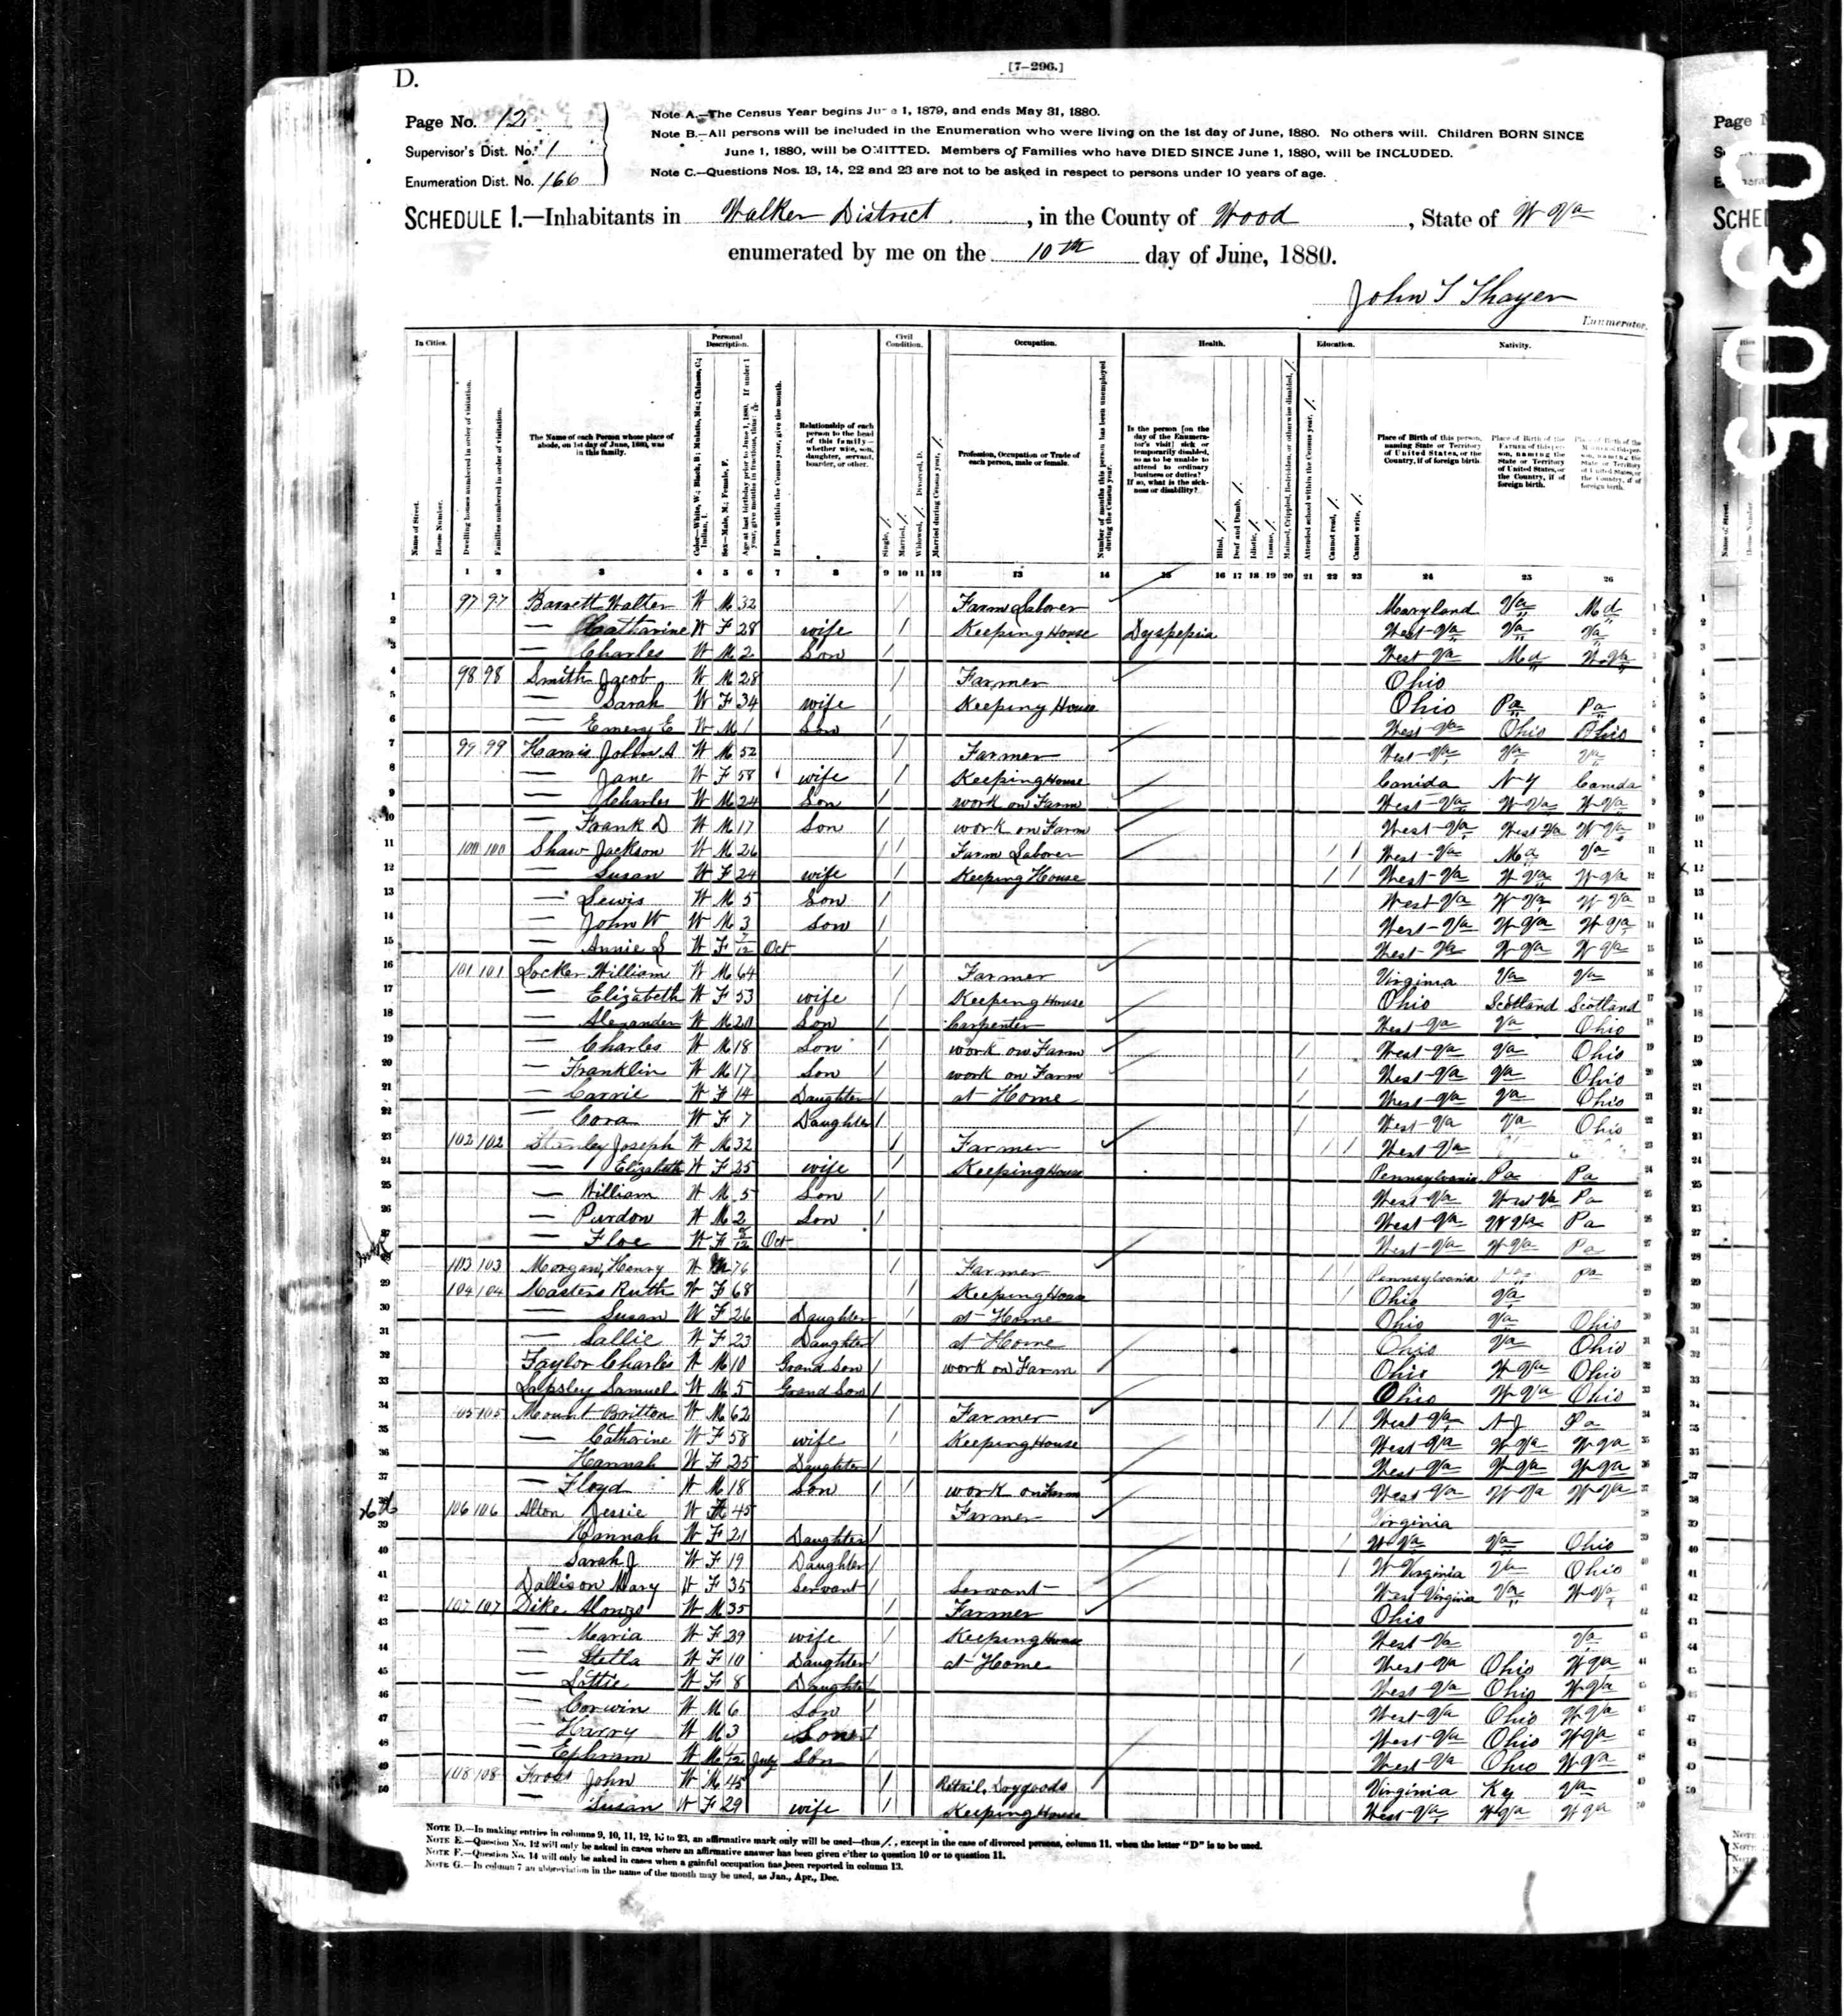 D.
[7-296.]
Page No. 12
Supervisor's Dist. No. 1
Enumeration Dist. No. 166
Note A.—The Census Year begins June 1, 1879, and ends May 31, 1880.
Note B.—All persons will be included in the Enumeration who were living on the 1st day of June, 1880. No others will. Children BORN SINCE
June 1, 1880, will be OMITTED. Members of Families who have DIED SINCE June 1, 1880, will be INCLUDED.
Note C.—Questions Nos. 13, 14, 22 and 23 are not to be asked in respect to persons under 10 years of age.
SCHEDULE 1.—Inhabitants in Walker District, in the County of Wood, State of W Va
enumerated by me on the 10th day of June, 1880.
John T Thayer
Enumerator.
In Cities. Personal Description. Civil Condition. Occupation. Health. Education. Nativity.
Name of Street. House Number. Dwelling houses numbered in order of visitation. Families numbered in order of visitation.
The Name of each Person whose place of abode, on 1st day of June, 1880, was in this family.
Color—White, W.; Black, B.; Mulatto, Mu.; Chinese, C.; Indian, I.
Sex—Male, M.; Female, F.
Relationship of each person to the head of this family—whether wife, son, daughter, servant, boarder, or other.
Single, / Married, / Widowed, / Divorced, D. Married during Census year, /
Profession, Occupation or Trade of each person, male or female.
Number of months this person has been unemployed during the Census year.
Is the person [on the day of the Enumerator's visit] sick or temporarily disabled, so as to be unable to attend to ordinary business or duties? If so, what is the sickness or disability?
Blind, / Deaf and Dumb, / Idiotic, / Insane, / Maimed, Crippled, Bedridden, or otherwise disabled, /
Attended school within the Census year, / Cannot read, / Cannot write, /
Place of Birth of this person, naming State or Territory of United States, or the Country, if of foreign birth.
1 2 3 4 5 6 7 8 9 10 11 12 13 14 15 16 17 18 19 20 21 22 23 24 25 26
1 97 97 Barrett Walter W M 32 / Farm Laborer Maryland Va Md 1
2 — Catharine W F 28 wife / Keeping House Dyspepsia West-Va Va Va 2
3 — Charles W M 2 Son / West Va Md W Va 3
4 98 98 Smith Jacob W M 28 / Farmer Ohio 4
5 — Sarah W F 34 wife Keeping House Ohio Pa Pa 5
6 — Emery E W M 1 Son / West-Va Ohio Ohio 6
7 99 99 Harris John A W M 52 / Farmer West-Va Va Va 7
8 — Jane W F 58 wife / Keeping House Canida N Y Canida 8
9 — Charles W M 24 Son / work on Farm West-Va W Va W Va 9
10 — Frank D W M 17 Son / work on Farm West-Va West-Va W Va 10
11 100 100 Shaw Jackson W M 26 / Farm Laborer / / West-Va Md Va 11
12 — Susan W F 24 wife / Keeping House / / West-Va W Va W Va 12
13 — Lewis W M 5 Son / West-Va W Va W Va 13
14 — John W W M 3 Son / West-Va W Va W Va 14
15 — Annie L W F 7/12 Oct / West-Va W Va W Va 15
16 101 101 Locker William W M 64 / Farmer Virginia Va Va 16
17 — Elizabeth W F 53 wife / Keeping House Ohio Scotland Scotland 17
18 — Alexander W M 20 Son / Carpenter West-Va Va Ohio 18
19 — Charles W M 18 Son / work on Farm / West-Va Va Ohio 19
20 — Franklin W M 17 Son / work on Farm / West-Va Va Ohio 20
21 — Carrie W F 14 Daughter / at Home / West-Va Va Ohio 21
22 — Cora W F 7 Daughter / / West-Va Va Ohio 22
23 102 102 Stanley Joseph W M 32 / Farmer / / West-Va 23
24 — Elizabeth W F 25 wife / Keeping House Pennsylvania Pa Pa 24
25 — William W M 5 Son / West-Va W Va Pa 25
26 — Purdon W M 2 Son / West-Va W Va Pa 26
27 — Floe W F 8/12 Oct West-Va W Va Pa 27
28 103 103 Morgan, Henry W M 76 / Farmer / / Pennsylvania Pa 28
29 104 104 Masters Ruth W F 68 / Keeping House / Ohio Va 29
30 — Susan W F 26 Daughter / at Home Ohio Va Ohio 30
31 — Sallie W F 23 Daughter / at Home Ohio Va Ohio 31
32 Taylor Charles W M 10 Grand Son / work on Farm Ohio W Va Ohio 32
33 Lapsley Samuel W M 5 Grand Son / Ohio W Va Ohio 33
34 105 105 Mount Britton W M 62 / Farmer / / West Va N J Pa 34
35 — Catherine W F 58 wife / Keeping House West Va W Va W Va 35
36 Hannah W F 25 Daughter / West-Va W Va W Va 36
37 — Floyd W M 18 Son / / work on Farm West-Va W Va W Va 37
38 106 106 Alton Jessie W M 45 Farmer Virginia 38
39 Hannah W F 21 Daughter / / W Va Va Ohio 39
40 Sarah J W F 19 Daughter / / W Virginia Va Ohio 40
41 Dallison Mary W F 35 Servant / Servant West Virginia Va W Va 41
42 107 107 Dike Alonzo W M 35 / Farmer Ohio 42
43 — Maria W F 29 wife / Keeping House West-Va Va 43
44 — Stella W F 10 Daughter / at Home / West-Va Ohio W Va 44
45 — Lottie W F 8 Daughter / West-Va Ohio W Va 45
46 — Corwin W M 6 Son / West-Va Ohio W Va 46
47 — Harry W M 3 Son / West-Va Ohio W Va 47
48 — Ephram W M July Son / West-Va Ohio W Va 48
49 108 108 John W M 45 / Retail Drygoods Virginia Ky Va 49
50 — Susan W F 29 wife / Keeping House West-Va W Va W Va 50
NOTE D.—In making entries in columns 9, 10, 11, 12, 16 to 23, an affirmative mark only will be used—thus /, except in the case of divorced persons, column 11, when the letter "D" is to be used.
NOTE E.—Question No. 12 will only be asked in cases where an affirmative answer has been given either to question 10 or to question 11.
NOTE F.—Question No. 14 will only be asked in cases when a gainful occupation has been reported in column 13.
NOTE G.—In column 7 an abbreviation in the name of the month may be used, as Jan., Apr., Dec.
0305
Page
SCHE